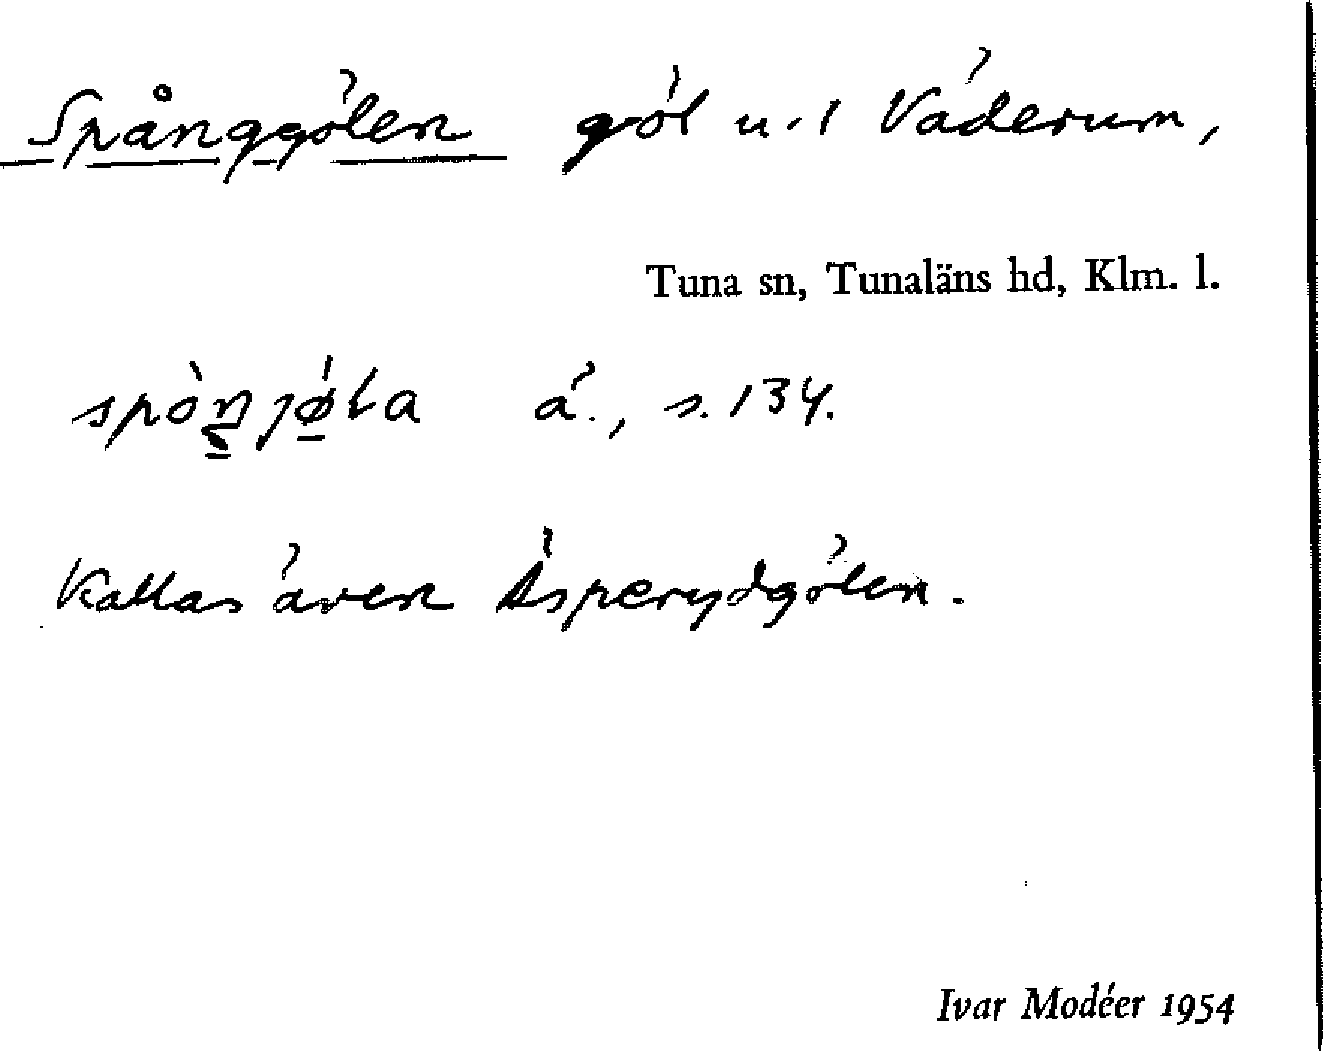 Spånggölen göl u. l Väderum,
Tuna sn, Tunaläns hd, Klm. l.
spòŋjǿla ä., s. 134.
Kallas även Äsperydgölen.
Ivar Modéer 1954